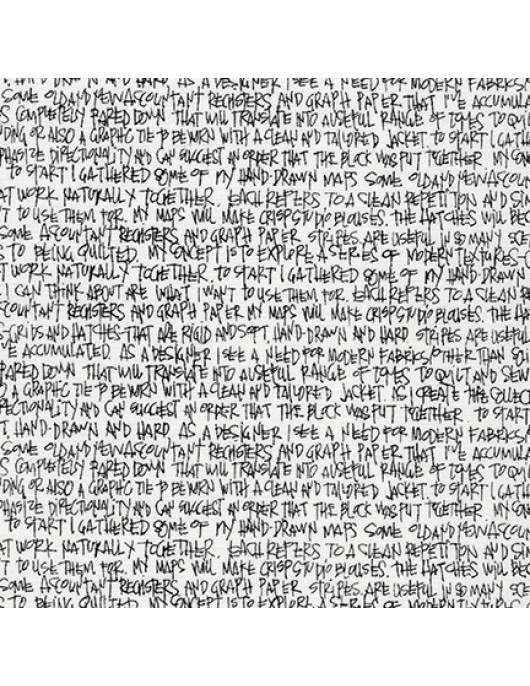 HAND-DRAWN AND HARD AS A DESIGNER I SEE A NEED FOR MODERN FABRICS
SOME OLD AND NEW ASCOUNTANT RECHISTERS AND GRAPH PAPER THAT I'VE ACCUMULA
S COMPLETELY PARED DOWN THAT WILL TRANSLATE INTO A USEFUL RANGE OF TONES TO QUIL
DING OR ALSO A GRAPHC TIE TO BE WORN WITH A CLEAN AND TAILORED JACKET. TO START I GATH
PHASIZE DIRECTIONALITY AND CAN SUGGEST AN ORDER THAT THE BLOCK WAS PUT TOGETHER MY CON
TO START I GATHERED SOME OF MY HAND-DRAWN MAPS SOME OLD AND NEW ASCOUN
AT WORK NATURALLY TOGETHER. EACH REFERS TO A CLEAN REPETITION AND SIN
T TO USE THEM FOR. MY MAPS WILL MAKE CRISP STUDIO BLOUSES. THE HATCHES WILL BEC
SOME ASCOUNTANT RECHISTERS AND GRAPH PAPER STRIPES ARE USEFUL IN SO MANY SCE
S TO BEING QUILTED. MY CONCEPT IS TO EXPLORE A SERIES OF MODERN TEXTURES
T WORK NATURALLY TOGETHER TO START I GATHERED SOME OF MY HAND-DRAWN
I CAN THINK ABOUT ARE WHAT I WANT TO USE THEM FOR. EACH REFERS TO A CLEAN REP
COUNTANT RECHISTERS AND GRAPH PAPER MY MAPS WILL MAKE CRISP STUDIO BLOUSES. THE HA
S GRIDS AND HATCHES THAT ARE RIGID AND SOFT, HAND-DRAWN AND HARD STRIPES ARE USEFUL
'VE ACCUMULATED. AS A DESIGNER I SEE A NEED FOR MODERN FABRICS OTHER THAN SO
PARED DOWN THAT WILL TRANSLATE INTO A USEFUL RANGE OF TONES TO QUILT AND SEW
A GRAPHC TIE TO BE WORN WITH A CLEAN AND TAILORED JACKET. AS I CREATE THE COLLEC
RECTIONALITY AND CAN SUGGEST AN ORDER THAT THE BLOCK WAS PUT TOGETHER TO START
T, HAND-DRAWN AND HARD AS A DESIGNER I SEE A NEED FOR MODERN FABRICS
SOME OLD AND NEW ASCOUNTANT RECHISTERS AND GRAPH PAPER THAT I'VE ACCUMULA
S COMPLETELY PARED DOWN THAT WILL TRANSLATE INTO A USEFUL RANGE OF TONES TO QUI
DING OR ALSO A GRAPHC TIE TO BE WORN WITH A CLEAN AND TAILORED JACKET. TO START I GATH
PHASIZE DIRECTIONALITY AND CAN SUGGEST AN ORDER THAT THE BLOCK WAS PUT TOGETHER MY CON
TO START I GATHERED SOME OF MY HAND-DRAWN MAPS SOME OLD AND NEW ASCOUN
AT WORK NATURALLY TOGETHER. EACH REFERS TO A CLEAN REPETITION AND SIN
T TO USE THEM FOR. MY MAPS WILL MAKE CRISP STUDIO BLOUSES. THE HATCHES WILL BEC
SOME ASCOUNTANT RECHISTERS AND GRAPH PAPER STRIPES ARE USEFUL IN SO MANY SCE
S TO BEING QUILTED. MY CONCEPT IS TO EXPLORE A SERIES OF MODERN TEXTURES